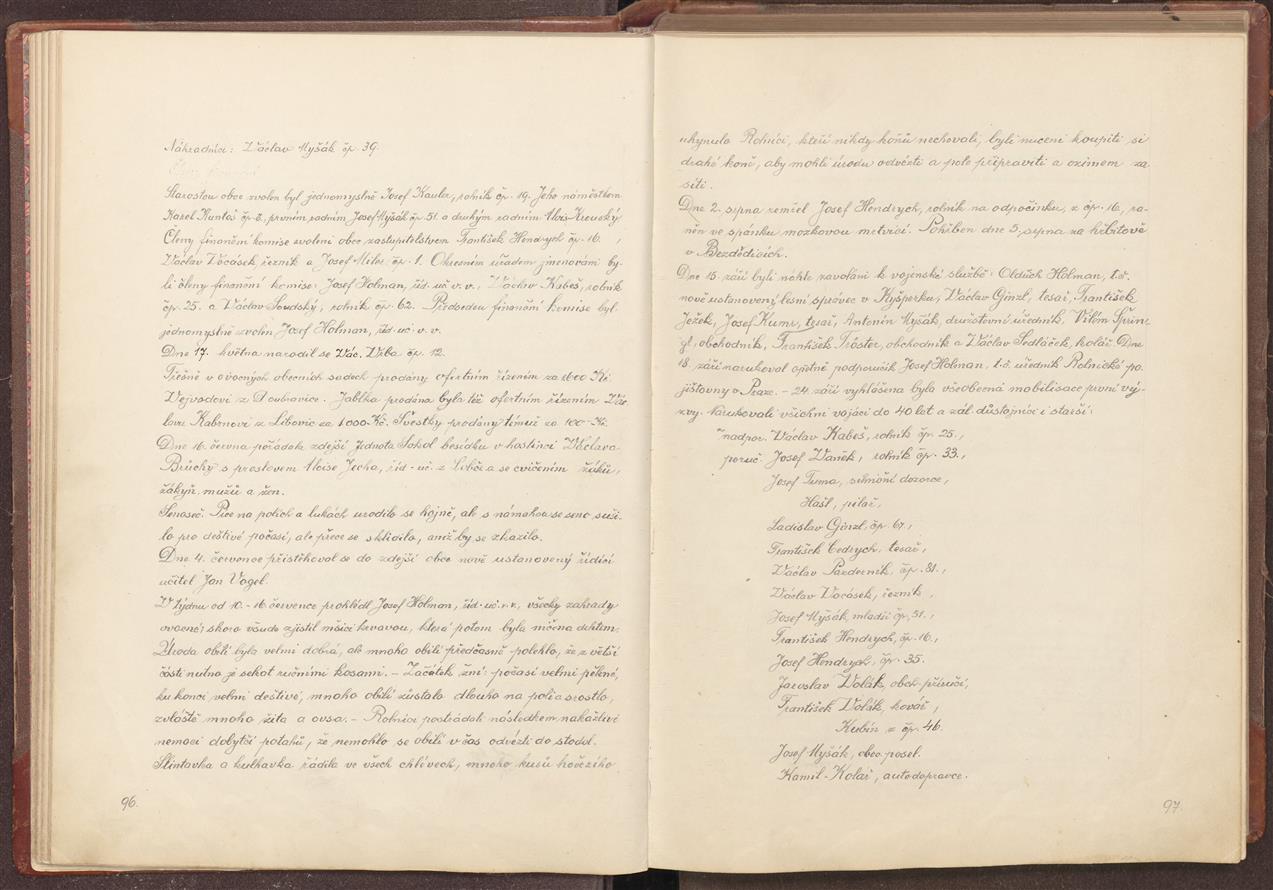 Náhradníci: Václav Myšák čp. 39.
Starostou obce zvolen byl jednomyslně Josef Kaula, rolník čp. 19. Jeho náměstkem
Karel Kuntoš čp. 8. prvním radním, Josef Myšák čp. 51. a druhým radním Alois
Členy finanční komise zvoleni obec. zastupitelstvem František Hendrych čp. 16.,
Václav Vocásek, řezník a Josef Miler čp. 1. Okresním úřadem jmenováni by-
li členy finanční komise: Josef Holman, říd. uč. v. v., Václav Kabeš, rolník
čp. 25. a Václav Soudský, rolník čp. 62. Předsedou finanční komise byl
jednomyslně zvolen Josef Holman, říd. uč. v. v.
Dne 17. května narodil se Vác. Vrba čp. 12.
Třešně v ovocných obecních sadech prodány ofertním řízením za 1600 Kč
Vejvodovi z Doubravice. Jablka prodána byla též ofertním řízením Vác-
lavu Kabrnovi z Libovic za 1.000 Kč. Švestky prodány týmuž za 100 Kč.
Dne 16. června pořádala zdejší Jednota Sokol besídku v hostinci Václava
Brůchy s proslovem Aloise Jecha, říd. uč. z Libče a se cvičením žáků,
žákyň, mužů a žen.
Senoseč. Píce na polích a lukách urodilo se hojně, ale s námahou se seno suši-
lo pro deštivé počasí, ale přece se sklidilo, aniž by se zkazilo.
Dne 4. července přistěhoval se do zdejší obce nově ustanovený řídící
učitel Jan Vogel.
V týdnu od 10. - 16. července prohlédl Josef Holman, říd. uč. v. v., všecky zahrady
ovocné; skoro všude zjistil mšici krvavou, která potom byla ničena dehtem.
Úroda obilí byla velmi dobrá, ale mnoho obilí předčasně polehlo, že z větší
části nutno je sekat ručními kosami. - Začátek žní: počasí velmi pěkné,
ku konci velmi deštivé, mnoho obilí zůstalo dlouho na poli a srostlo,
zvláště mnoho žita a ovsa. - Rolníci postrádali následkem nakažlivé
nemoci dobytčí potahů, že nemohlo se obilí v čas odvézti do stodol.
Slintavka a kulhavka řádila ve všech chlévech, mnoho kusů hovězího
96.
uhynulo. Rolníci, kteří nikdy koňů nechovali, byli nuceni koupiti si
drahé koně, aby mohli úrodu odvézti a pole připraviti a ozimem za-
síti.
Dne 2. srpna zemřel Josef Hendrych, rolník na odpočinku, z čp. 16, ra-
něn ve spánku mozkovou mrtvicí. Pohřben dne 5. srpna na hřbitově
v Bezdědicích.
Dne 15. září byli náhle zavoláni k vojenské službě: Oldřich Holman, t. č.
nově ustanovený lesní správce v Kyšperku, Václav Ginzl, tesař, František
Ježek, Josef Kumr, tesař, Antonín Myšák, družstevní úředník, Vilém Sprin-
gl, obchodník, František Tröster, obchodník a Václav Sedláček, kolář. Dne
18. září narukoval opětně podporučík Josef Holman, t. č. úředník Rolnické po-
jišťovny v Praze. - 24. září vyhlášena byla všeobecná mobilisace první vý-
zvy. Narukovali všichni vojáci do 40 let a zál. důstojníci i starší:
nadpor. Václav Kabeš, rolník čp. 25.,
poruč. Josef Vaněk, rolník čp. 33.,
Josef Tuma, silniční dozorce,
Hašl, pilař,
Ladislav Ginzl, čp. 67.,
František Cedrych, tesař,
Václav Pazderník, čp. 81.,
Václav Vocásek, řezník,
Josef Myšák, mladší čp. 51.,
František Hendrych, čp. 16.,
Josef Hendrych, čp. 35.
Jaroslav Volák, obch. příručí,
František Volák, kovář,
Kubín z čp. 46.
Josef Myšák, obec. posel.
Kamil Kolář, autodopravce.
97.